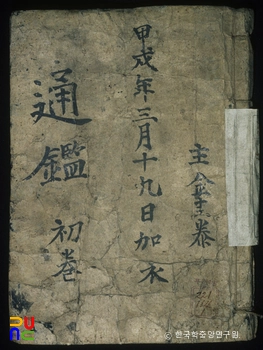 主
甲戌年三月十九日加衣
通鑑
初卷
한국학중앙연구원